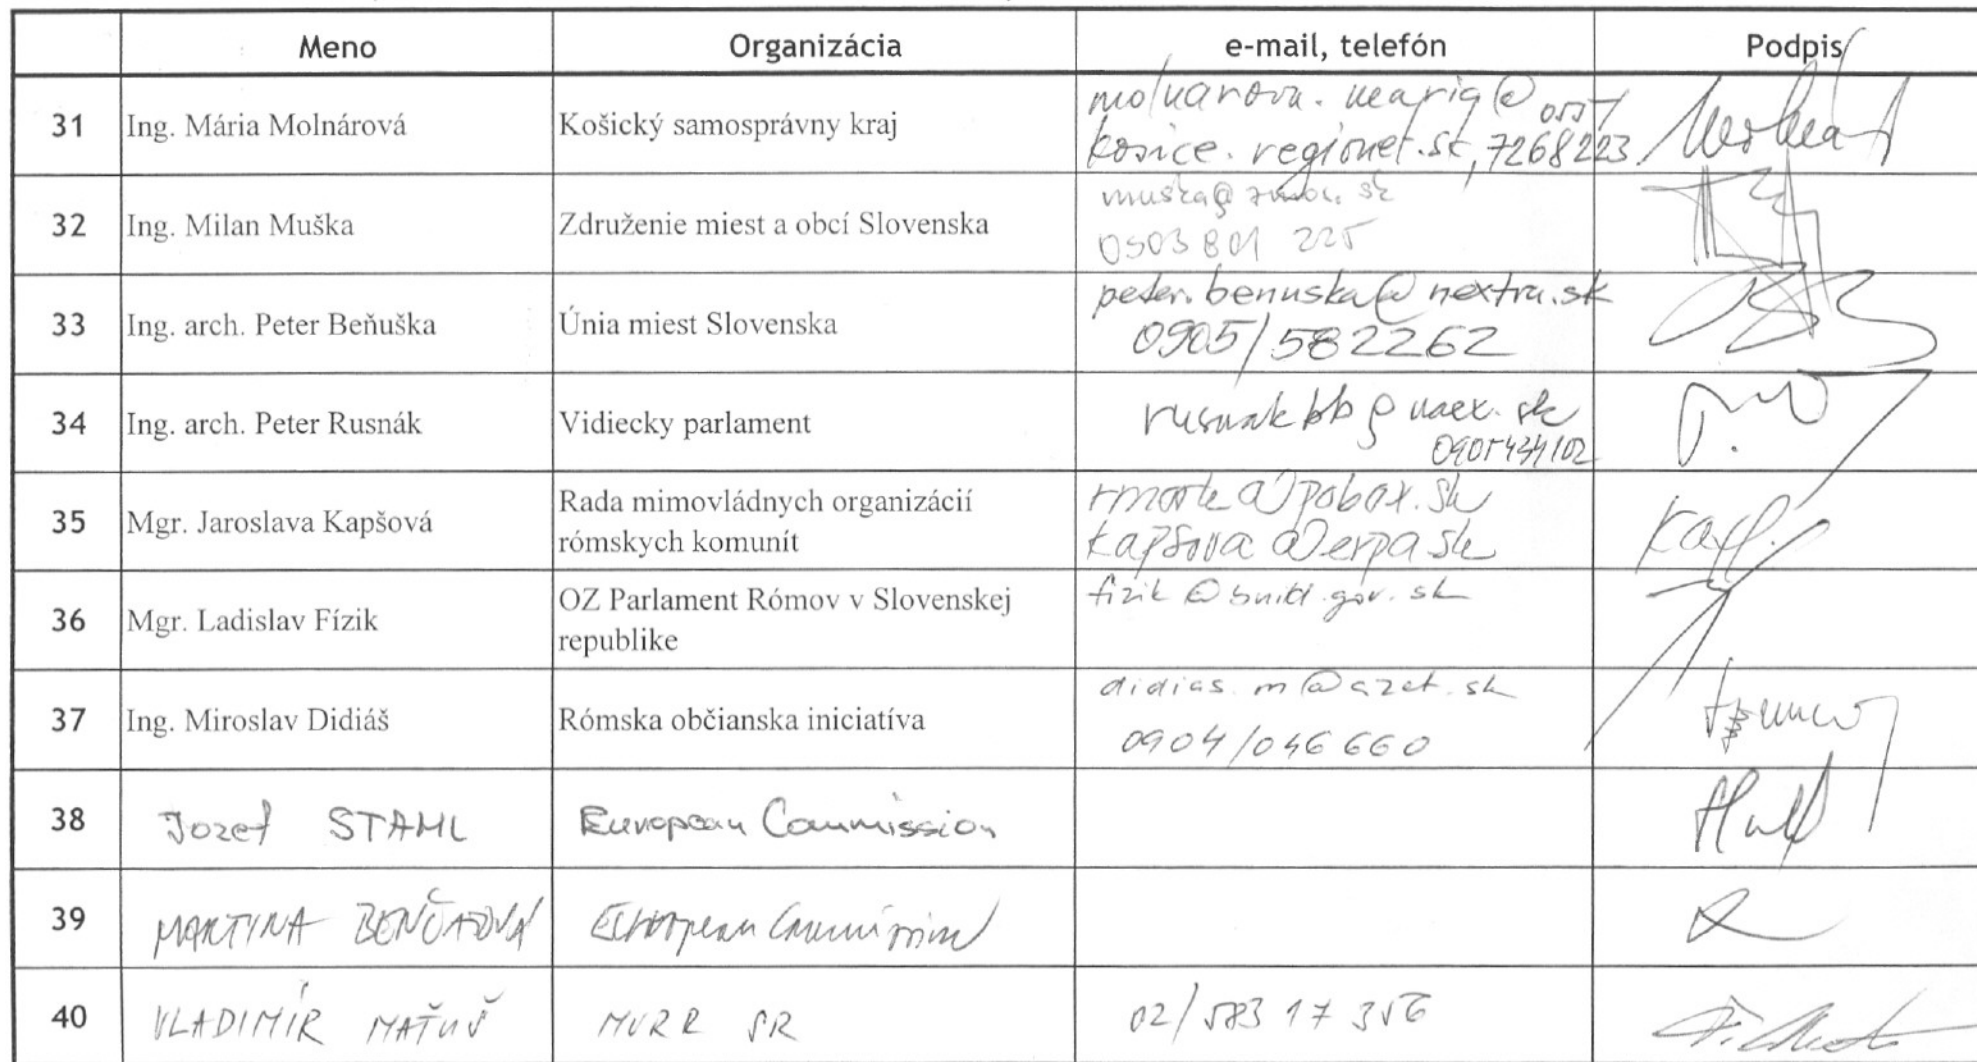 Meno Organizácia e-mail, telefón Podpis
31 Ing. Mária Molnárová Košický samosprávny kraj molnarova.maria@
kosice.regionet.sk, 7268223
32 Ing. Milan Muška Združenie miest a obcí Slovenska muska@zmos.sk
0903 801 225
33 Ing. arch. Peter Beňuška Únia miest Slovenska peter.benuska@nextra.sk
0905/582262
34 Ing. arch. Peter Rusnák Vidiecky parlament
0905434102
35 Mgr. Jaroslava Kapšová Rada mimovládnych organizácií
rómskych komunít
36 Mgr. Ladislav Fízik OZ Parlament Rómov v Slovenskej
republike
37 Ing. Miroslav Didiáš Rómska občianska iniciatíva didias.m@azet.sk
0904/046 660
38 Jozef STAHL European Commission
39 MARTINA BENČAŤOVÁ European Commission
40 VLADIMÍR MAŤUŠ MVRR SR 02/583 17 356